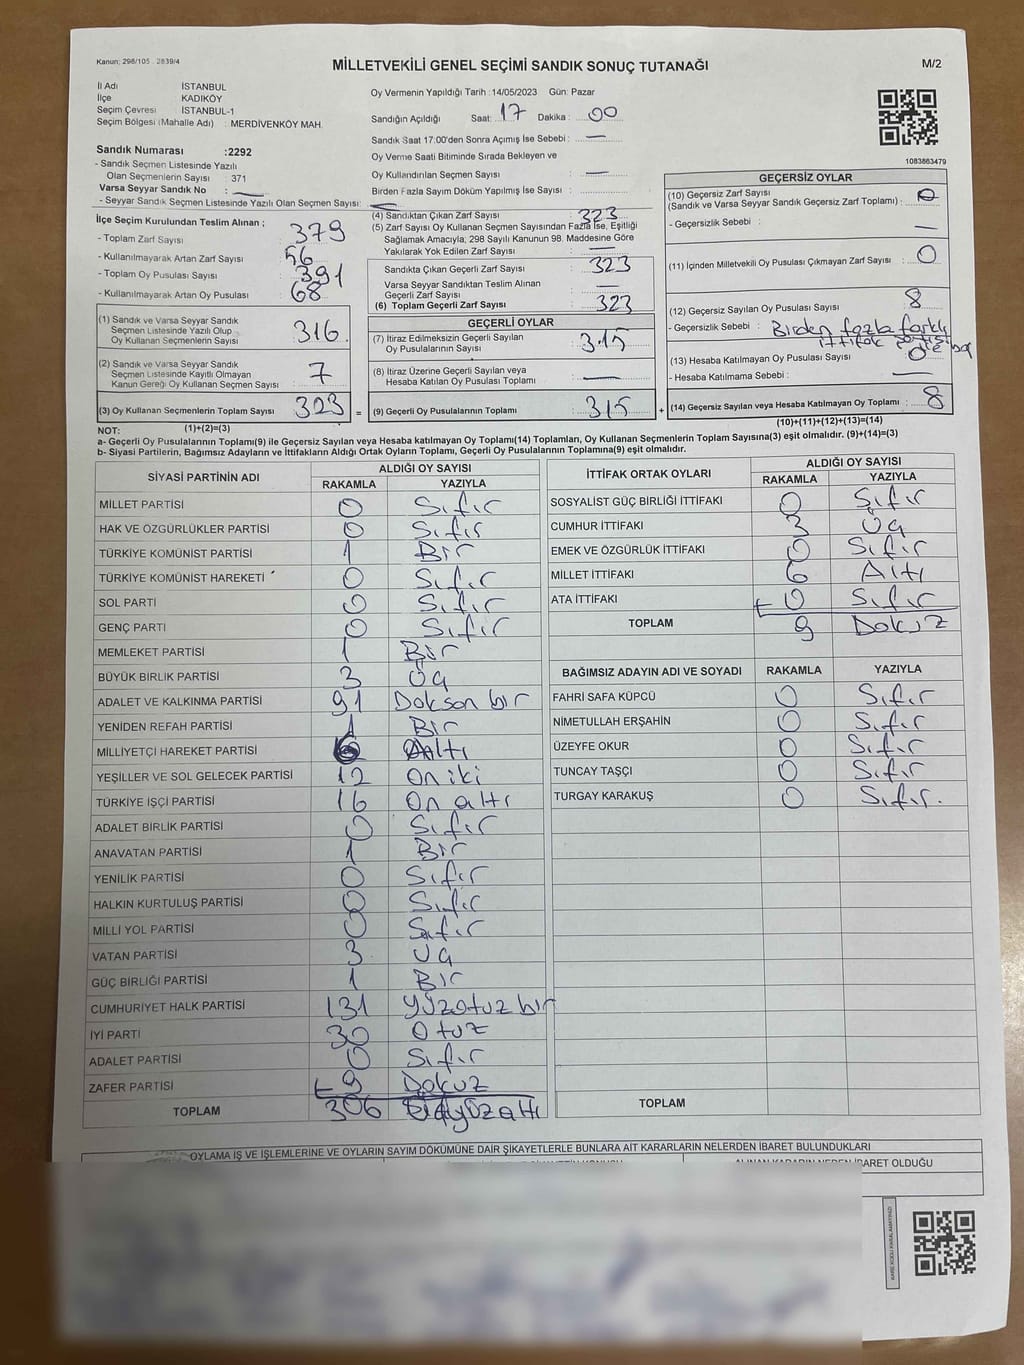 Kanun: 298/105 . 2839/4
MİLLETVEKİLİ GENEL SEÇİMİ SANDIK SONUÇ TUTANAĞI
M/2
İl Adı İSTANBUL
İlçe KADIKÖY
Seçim Çevresi İSTANBUL-1
Seçim Bölgesi (Mahalle Adı) : MERDİVENKÖY MAH.
Sandık Numarası :2292
- Sandık Seçmen Listesinde Yazılı
Olan Seçmenlerin Sayısı : 371
Varsa Seyyar Sandık No : —
- Seyyar Sandık Seçmen Listesinde Yazılı Olan Seçmen Sayısı: —
Oy Vermenin Yapıldığı Tarih :14/05/2023 Gün: Pazar
Sandığın Açıldığı Saat: 17 Dakika : 00
Sandık Saat 17:00'den Sonra Açımış İse Sebebi : —
Oy Verme Saati Bitiminde Sırada Bekleyen ve
Oy Kullandırılan Seçmen Sayısı : —
Birden Fazla Sayım Döküm Yapılmış İse Sayısı :
1083863479
İlçe Seçim Kurulundan Teslim Alınan ;
- Toplam Zarf Sayısı : 379
- Kullanılmayarak Artan Zarf Sayısı : 56
- Toplam Oy Pusulası Sayısı : 391
- Kullanılmayarak Artan Oy Pusulası : 68
(1) Sandık ve Varsa Seyyar Sandık
Seçmen Listesinde Yazılı Olup
Oy Kullanan Seçmenlerin Sayısı : 316
(2) Sandık ve Varsa Seyyar Sandık
Seçmen Listesinde Kayıtlı Olmayan
Kanun Gereği Oy Kullanan Seçmen Sayısı : 7
(3) Oy Kullanan Seçmenlerin Toplam Sayısı : 323 =
(4) Sandıktan Çıkan Zarf Sayısı : 323
(5) Zarf Sayısı Oy Kullanan Seçmen Sayısından Fazla İse, Eşitliği
Sağlamak Amacıyla; 298 Sayılı Kanunun 98. Maddesine Göre
Yakılarak Yok Edilen Zarf Sayısı : —
Sandıkta Çıkan Geçerli Zarf Sayısı : 323
Varsa Seyyar Sandıktan Teslim Alınan
Geçerli Zarf Sayısı : —
(6) Toplam Geçerli Zarf Sayısı : 323
GEÇERLİ OYLAR
(7) İtiraz Edilmeksizin Geçerli Sayılan
Oy Pusulalarının Sayısı : 315
(8) İtiraz Üzerine Geçerli Sayılan veya
Hesaba Katılan Oy Pusulası Toplamı : —
(9) Geçerli Oy Pusulalarının Toplamı : 315 +
GEÇERSİZ OYLAR
(10) Geçersiz Zarf Sayısı
(Sandık ve Varsa Seyyar Sandık Geçersiz Zarf Toplamı) : 0
- Geçersizlik Sebebi : —
(11) İçinden Milletvekili Oy Pusulası Çıkmayan Zarf Sayısı : 0
(12) Geçersiz Sayılan Oy Pusulası Sayısı : 8
- Geçersizlik Sebebi : Birden fazla farklı
ittifak
(13) Hesaba Katılmayan Oy Pusulası Sayısı : 0
- Hesaba Katılmama Sebebi : —
(14) Geçersiz Sayılan veya Hesaba Katılmayan Oy Toplamı : 8
NOT: (1)+(2)=(3)
(10)+(11)+(12)+(13)=(14)
a- Geçerli Oy Pusulalarının Toplamı(9) ile Geçersiz Sayılan veya Hesaba katılmayan Oy Toplamı(14) Toplamları, Oy Kullanan Seçmenlerin Toplam Sayısına(3) eşit olmalıdır. (9)+(14)=(3)
b- Siyasi Partilerin, Bağımsız Adayların ve İttifakların Aldığı Ortak Oyların Toplamı, Geçerli Oy Pusulalarının Toplamına(9) eşit olmalıdır.
SİYASİ PARTİNİN ADI ALDIĞI OY SAYISI
RAKAMLA YAZIYLA
MİLLET PARTİSİ 0 Sıfır
HAK VE ÖZGÜRLÜKLER PARTİSİ 0 Sıfır
TÜRKİYE KOMÜNİST PARTİSİ 1 Bir
TÜRKİYE KOMÜNİST HAREKETİ 0 Sıfır
SOL PARTİ 0 Sıfır
GENÇ PARTİ 0 Sıfır
MEMLEKET PARTİSİ 1 Bir
BÜYÜK BİRLİK PARTİSİ 3 Üç
ADALET VE KALKINMA PARTİSİ 91 Doksan bir
YENİDEN REFAH PARTİSİ 1 Bir
MİLLİYETÇİ HAREKET PARTİSİ 6 Altı
YEŞİLLER VE SOL GELECEK PARTİSİ 12 On iki
TÜRKİYE İŞÇİ PARTİSİ 16 On altı
ADALET BİRLİK PARTİSİ 0 Sıfır
ANAVATAN PARTİSİ 1 Bir
YENİLİK PARTİSİ 0 Sıfır
HALKIN KURTULUŞ PARTİSİ 0 Sıfır
MİLLİ YOL PARTİSİ 0 Sıfır
VATAN PARTİSİ 3 Üç
GÜÇ BİRLİĞİ PARTİSİ 1 Bir
CUMHURİYET HALK PARTİSİ 131 Yüzotuz bir
İYİ PARTİ 30 Otuz
ADALET PARTİSİ 0 Sıfır
ZAFER PARTİSİ + 9 Dokuz
TOPLAM 306 Üçyüzaltı
İTTİFAK ORTAK OYLARI ALDIĞI OY SAYISI
RAKAMLA YAZIYLA
SOSYALİST GÜÇ BİRLİĞİ İTTİFAKI 0 Sıfır
CUMHUR İTTİFAKI 3 Üç
EMEK VE ÖZGÜRLÜK İTTİFAKI 0 Sıfır
MİLLET İTTİFAKI 6 Altı
ATA İTTİFAKI + 0 Sıfır
TOPLAM 9 Dokuz
BAĞIMSIZ ADAYIN ADI VE SOYADI RAKAMLA YAZIYLA
FAHRİ SAFA KÜPCÜ 0 Sıfır
NİMETULLAH ERŞAHİN 0 Sıfır
ÜZEYFE OKUR 0 Sıfır
TUNCAY TAŞÇI 0 Sıfır
TURGAY KARAKUŞ 0 Sıfır.
TOPLAM
OYLAMA İŞ VE İŞLEMLERİNE VE OYLARIN SAYIM DÖKÜMÜNE DAİR ŞİKAYETLERLE BUNLARA AİT KARARLARIN NELERDEN İBARET BULUNDUKLARI
ALINAN KARARIN NEDEN İBARET OLDUĞU